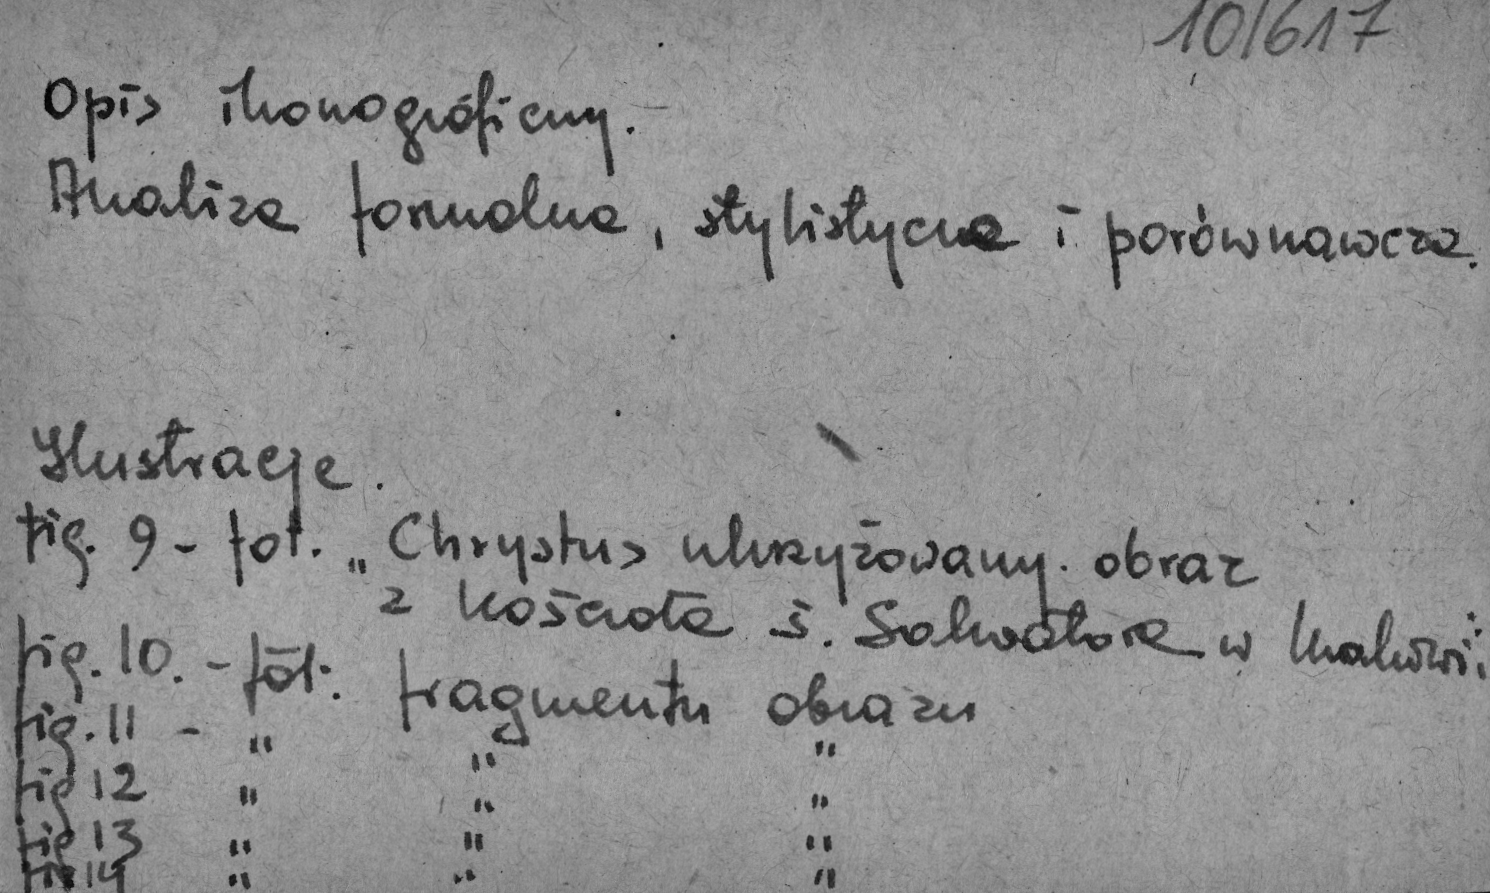 10/617
Opis ikonograficzny.
Analiza formalna, stylistyczna i porównawcza.
Ilustracje.
fig. 9 - fot. „Chrystus ukrzyżowany. obraz
z kościoła ś. Salwatora w Krakowi:
fig. 10. - fot. fragmentu obrazu
fig. 11 - " " "
fig 12 " " "
fig 13 " " "
fig 14 " " "